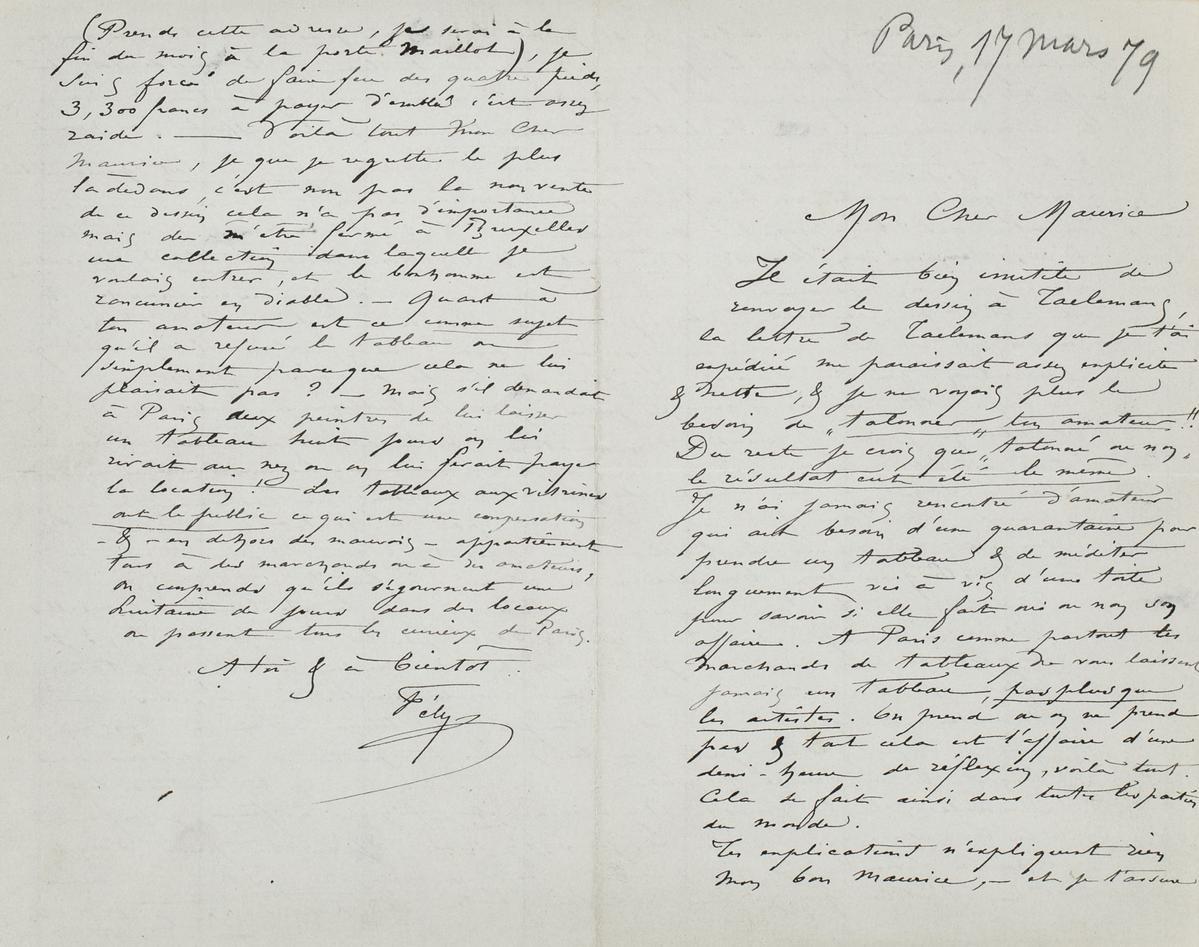 Paris, 17 Mars 79
Mon Cher Maurice
Il était bien inutile de
renvoyer le dessin à Taelemans,
la lettre de Taelemans que je t'ai
expédiée me paraissait assez explicite
& nette, & je ne voyais plus le
besoin de „talonner„ ton amateur!!
Du reste je crois que „talonné ou non„
le résultat eut été le même.
Je n'ai jamais rencontré d'amateur
qui aut besoin d'une quarantaine pour
prendre un tableau & de méditer
longuement vis à vis d'une toile
pour savoir si elle fait oui ou non son
affaire. A Paris comme partout les
marchands de tableaux ne vous laissent
jamais un tableau, pas plus que
les artistes. On prend ou on ne prend
pas & tout cela est l'affaire d'une
demi-heure de réflexion, voilà tout.
Cela se fait ainsi dans toutes les parties
du monde.
Tes explications n'expliquent rien
mon bon Maurice, – et je t'assure
(Prends cette adresse, je serai à la
fin du mois à la porte Maillot), je
suis forcé de faire feu des quatre pieds,
3,300 francs à payer d'emblée c'est assez
raide. — Voilà tout mon Cher
Maurice, je que je regrette le plus
là dedans, c'est non pas la non vente
de ce dessin cela n'a pas d'importance
mais de m'être fermé à Bruxelles
une collection dans laquelle je
voulais entrer, et le bonhomme est
rancunier en diable. – Quant à
ton amateur est ce comme sujet
qu'il a refusé le tableau ou
simplement parce que cela ne lui
plaisait pas? – Mais s'il demandait
à Paris aux peintres de lui laisser
un tableau huit jours on lui
rirait au nez ou on lui ferait payer
la location! Les tableaux aux vitrines
ont le public ce qui est une compensation
- & - en dehors des mauvais – appartiennent
tous à des marchands ou à des amateurs,
on comprend qu'ils séjournent une
huitaine de jours dans des locaux
où passent tous les curieux de Paris.
A toi & à bientôt.
Fély